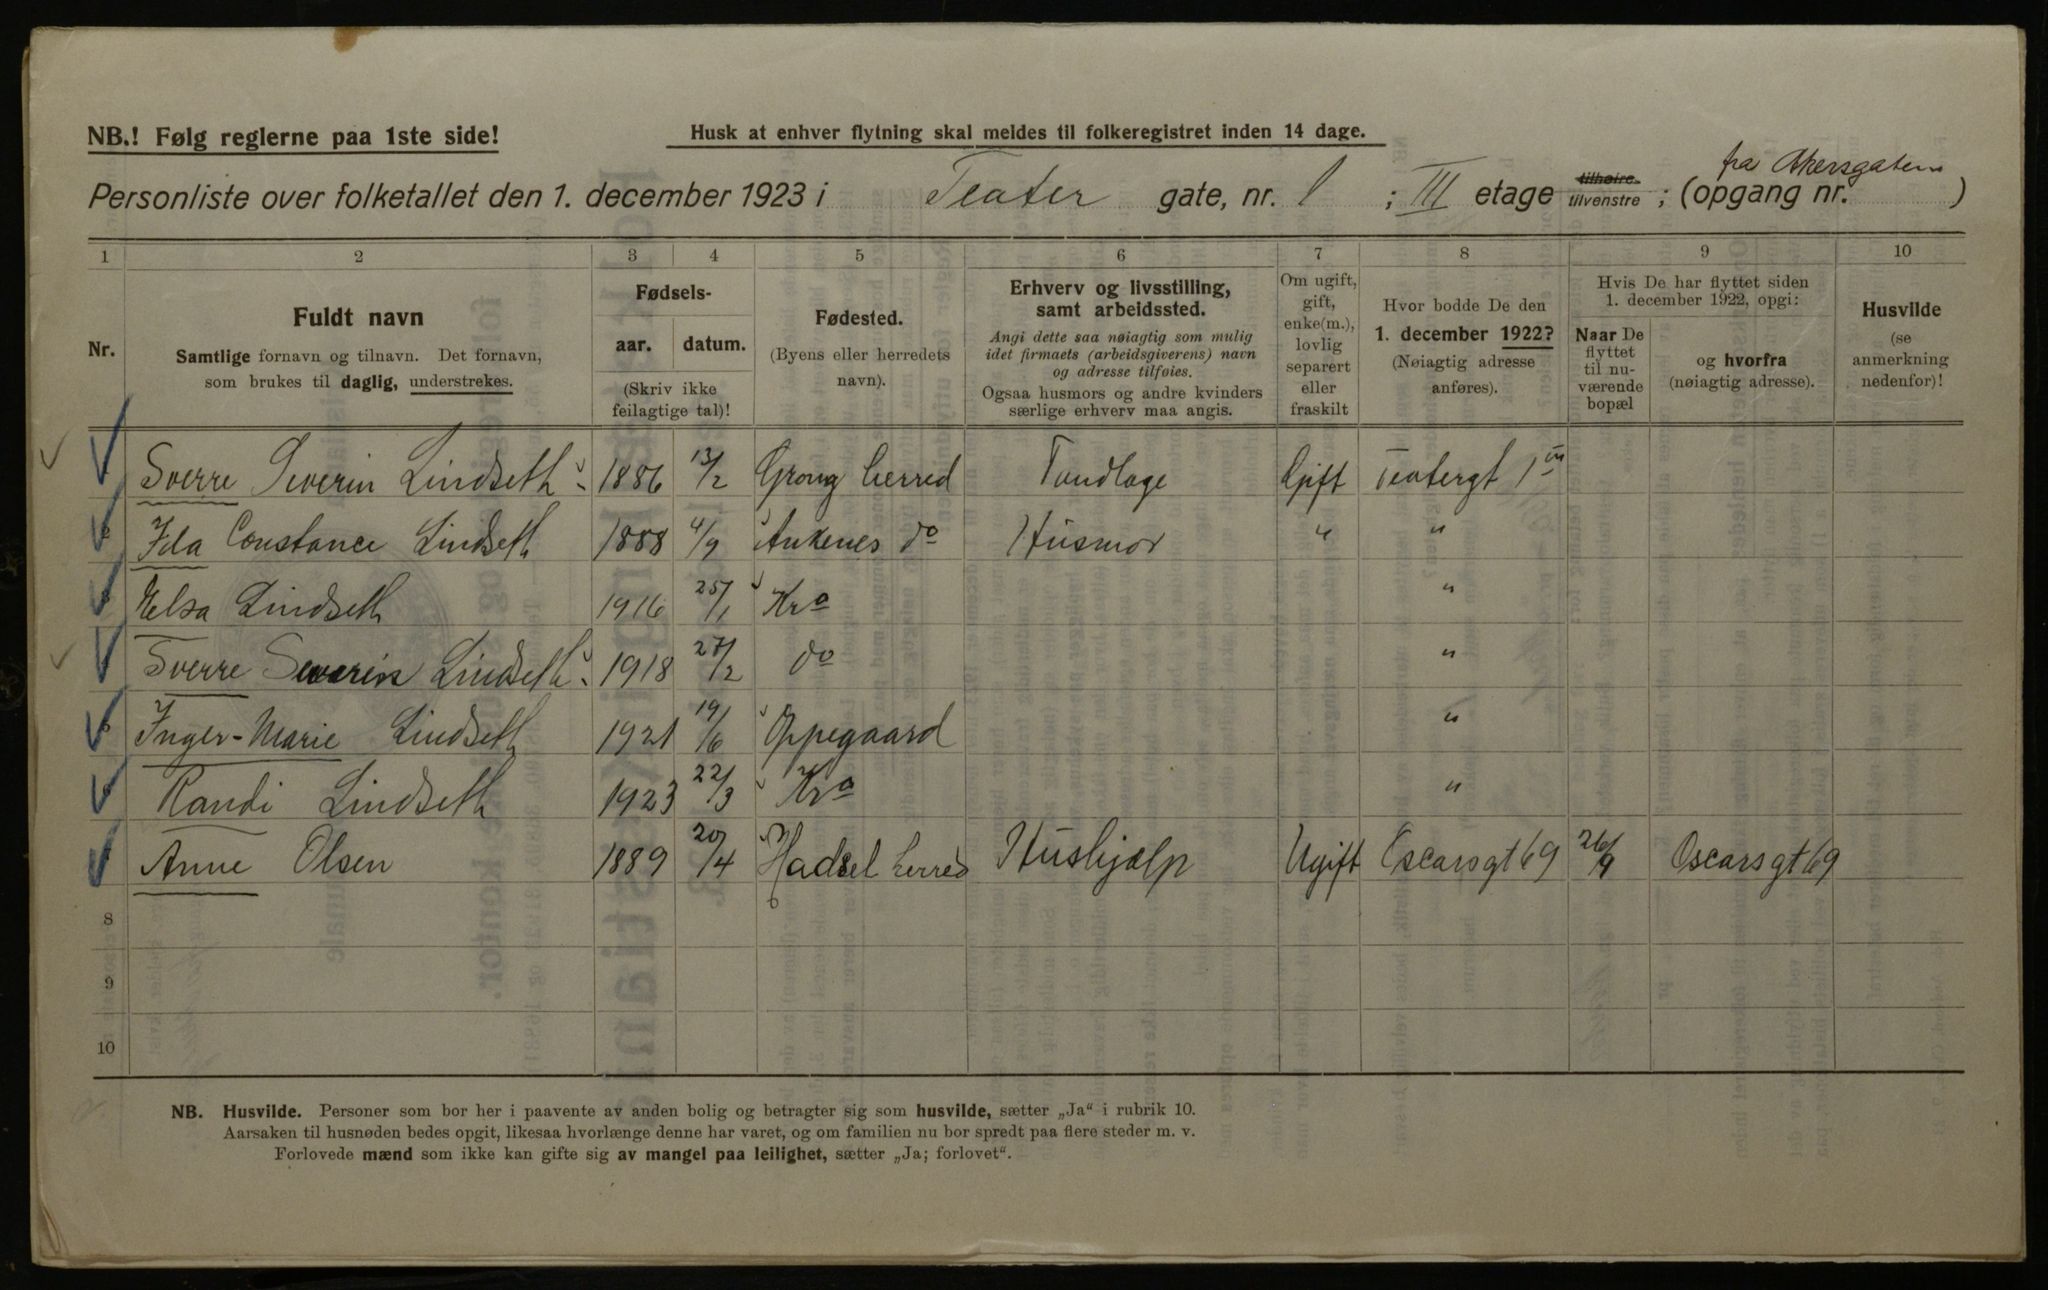 NB.! Følg reglerne paa 1ste side!
Husk at enhver flytning skal meldes til folkeregistret inden 14 dage.
fra Akersgaten
Personliste over folketallet den 1. december 1923 i Teater gate, nr. 1 ; III etage tilhøire tilvenstre ; (opgang nr. )
1 2 3 4 5 6 7 8 9 10
Nr.
Fuldt navn
Samtlige fornavn og tilnavn. Det fornavn,
som brukes til daglig, understrekes.
Fødsels-
aar. datum.
(Skriv ikke
feilagtige tal)!
Fødested.
(Byens eller herredets
navn).
Erhverv og livsstilling,
samt arbeidssted.
Angi dette saa nøiagtig som mulig
idet firmaets (arbeidsgiverens) navn
og adresse tilføies.
Ogsaa husmors og andre kvinders
særlige erhverv maa angis.
Om ugift,
gift,
enke(m.),
lovlig
separert
eller
fraskilt
Hvor bodde De den
1. december 1922?
(Nøiagtig adresse
anføres).
Hvis De har flyttet siden
1. december 1922, opgi:
Naar De
flyttet
til nu-
værende
bopæl
og hvorfra
(nøiagtig adresse).
Husvilde
(se
anmerkning
nedenfor)!
Sverre Severin Lindseth 1886 13/2 Grong herred Tandlæge Gift Teatergt 1 III
Ida Constance Lindseth 1888 4/9 Ankenes do Husmor " "
Elsa Lindseth 1916 25/1 Kra "
Sverre Severin Lindseth 1918 27/2 do "
Inger-Marie Lindseth 1921 19/6 Oppegaard "
Randi Lindseth 1923 22/3 Kra "
Anne Olsen 1889 20/4 Hadsel herred Hushjælp Ugift Oscarsgt 69 26/9 Oscarsgt 69
8
9
10
NB. Husvilde. Personer som bor her i paavente av anden bolig og betragter sig som husvilde, sætter „Ja“ i rubrik 10.
Aarsaken til husnøden bedes opgit, likesaa hvorlænge denne har varet, og om familien nu bor spredt paa flere steder m. v.
Forlovede mænd som ikke kan gifte sig av mangel paa leilighet, sætter „Ja; forlovet“.